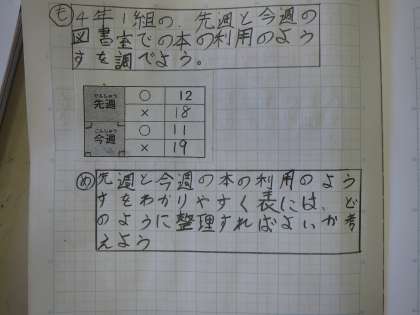 も 4年1組の、先週と今週の
図書室での本の利用のよう
すを調べよう。
せんしゅう
先週 ○ 12
× 18
こんしゅう
今週 ○ 11
× 19
め 先週と今週の本の利用のよう
すをわかりやすく表には、ど
のように整理すればよいか考
えよう